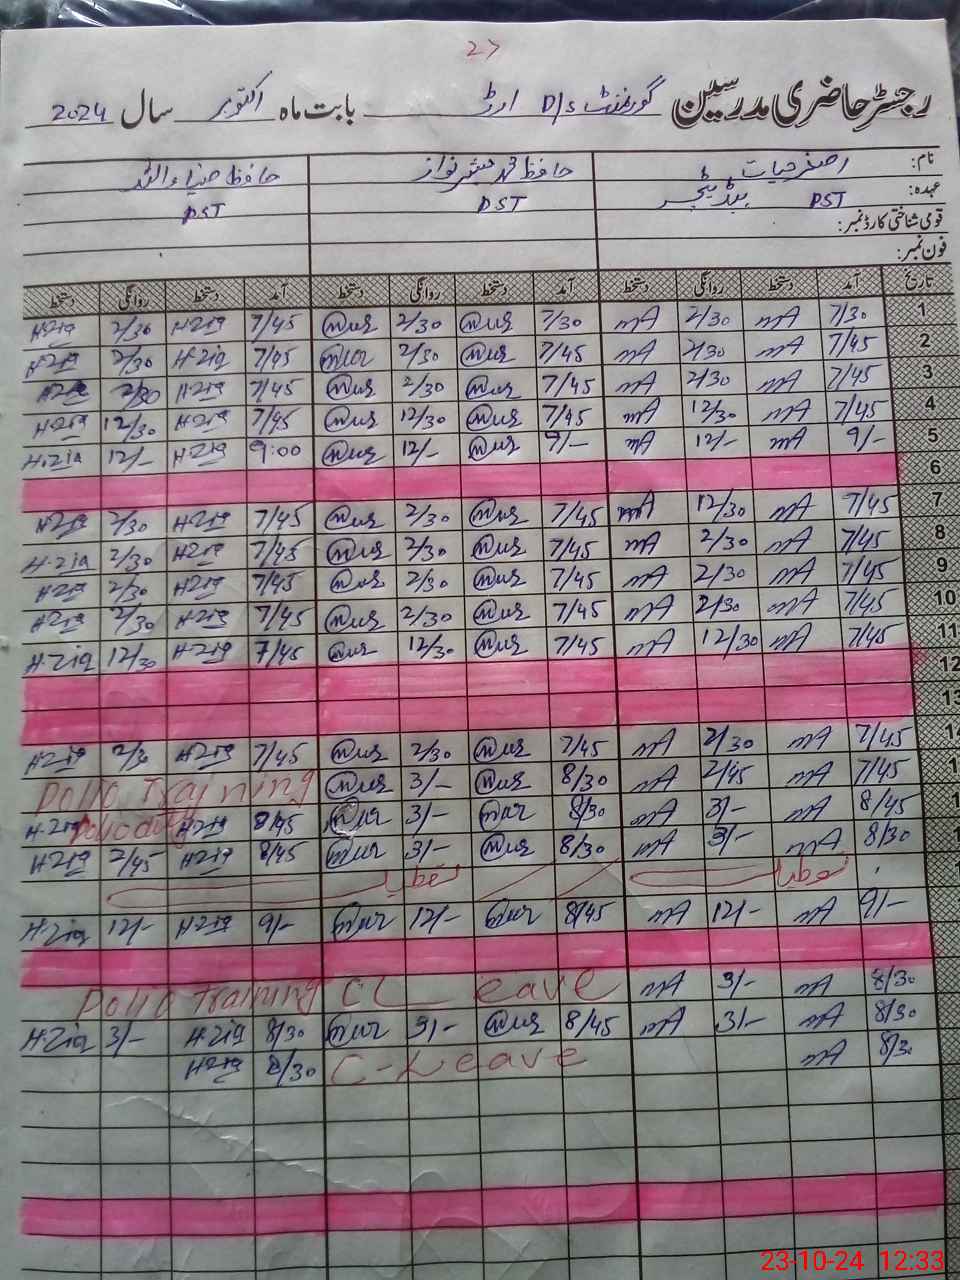 27
رجسٹر حاضری مدرسین گورنمنٹ P/s بابت ماہ اکتوبر سال 2024
نام: اصغر حیات حافظ محمد نواز حافظ ضیاء اللہ
عہدہ: PST ہیڈ ٹیچر PST PST
قومی شناختی کارڈ نمبر:
فون نمبر:
تاریخ آمد دستخط روانگی دستخط آمد دستخط روانگی دستخط آمد دستخط روانگی دستخط
1 7/30 mA 2/30 mA 7/30 2/30 7/45 H-Zia 2/30 H-Zia
2 7/45 mA 2/30 mA 7/45 2/30 7/45 H-Zia 2/30 H-Zia
3 7/45 mA 2/30 mA 7/45 2/30 7/45 H-Zia 2/30 H-Zia
4 7/45 mA 12/30 mA 7/45 12/30 7/45 H-Zia 12/30 H-Zia
5 9/- mA 12/- mA 9/- 12/- 9:00 H-Zia 12/- H-Zia
6
7 7/45 mA 12/30 mA 7/45 2/30 7/45 H-Zia 2/30 H-Zia
8 7/45 mA 2/30 mA 7/45 2/30 7/45 H-Zia 2/30 H-Zia
9 7/45 mA 2/30 mA 7/45 2/30 7/45 H-Zia 2/30 H-Zia
10 7/45 mA 2/30 mA 7/45 2/30 7/45 H-Zia 2/30 H-Zia
11 7/45 mA 12/30 mA 7/45 12/30 7/45 H-Zia 12/30 H-Zia
12
13
14 7/45 mA 2/30 mA 7/45 2/30 7/45 H-Zia 2/30 H-Zia
7/45 mA 2/45 mA 8/30 3/- Polio Training
8/45 mA 3/- mA 8/30 3/- 8/45 H-Zia Polio duty H-Zia
8/30 mA 3/- mA 8/30 3/- 8/45 H-Zia 2/45 H-Zia
تعطیل تعطیل
9/- mA 12/- mA 8/45 12/- 9/- H-Zia 12/- H-Zia
8/30 mA 3/- mA CL Leave Polio Training
8/30 mA 3/- mA 8/45 3/- 8/30 H-Zia 3/- H-Zia
8/30 mA C-Leave 8/30 H-Zia
23-10-24 12:33